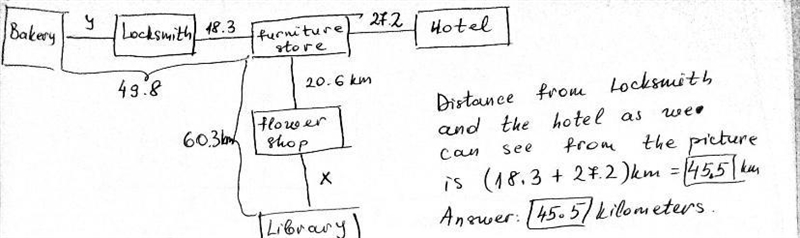 Bakery
y
Locksmith
18.3
furniture
store
27.2
Hotel
49.8
20.6 km
60.3km
flower
shop
x
Library
Distance from Locksmith
and the hotel as we
can see from the picture
is (18.3 + 27.2)km = 45.5 km
Answer: 45.5 kilometers.